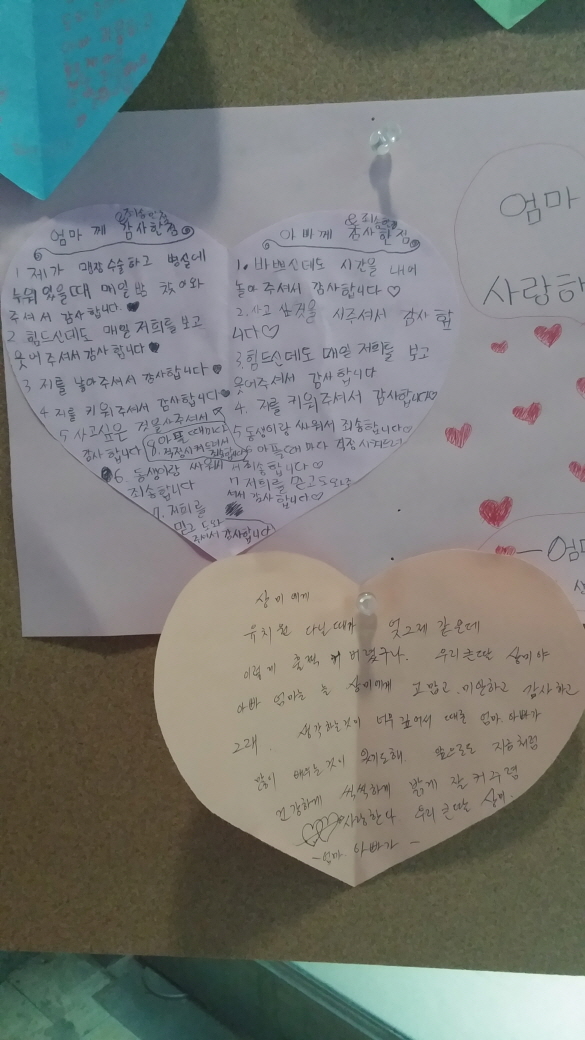 엄마께 & 죄송한점 감사한점
1 제가 맹장수술하고 병실에
누워있을때 매일밤 찾아와
주셔서 감사합니다.
2 힘드신데도 매일 저희를 보고
웃어주셔서 감사합니다
3 저를 낳아주셔서 감사합니다
4 저를 키워주셔서 감사합니다
5 사고싶은 것을 사주셔서
감사합니다
8. 아플때마다
걱정시켜드려서
죄송합니다
6. 동생이랑 싸워서
죄송합니다
7. 저희를
믿고 도와
주셔서 감사합니다
아빠께 & 죄송한 감사한점
1. 바쁘신데도 시간을 내어
놀아주셔서 감사합니다♡
2. 사고 싶은것을 사주셔서 감사합
니다♡
3. 힘드신데도 매일 저희를 보고
웃어주셔서 감사합니다
4. 저를 키워주셔서 감사합니다♡
5 동생이랑 싸워서 죄송합니다♡
아플때마다 걱정시켜드려
서 죄송합니다♡
7 저희를 믿고 도와주
셔서 감사합니다♡
상미에게
유치원 다닐때가 엊그제 같은데
이렇게 훌쩍 커버렸구나. 우리큰딸 상미야
아빠 엄마는 늘 상미에게 고맙고 미안하고 감사하고
그래. 생각하는것이 너무 깊어서 때론 엄마 아빠가
많이 배우는것이 있기도해. 앞으로도 지금처럼
건강하게 씩씩하게 밝게 잘 커주렴
♡♡사랑한다 우리 큰딸 상미.
-엄마 아빠가-
엄마
사랑하